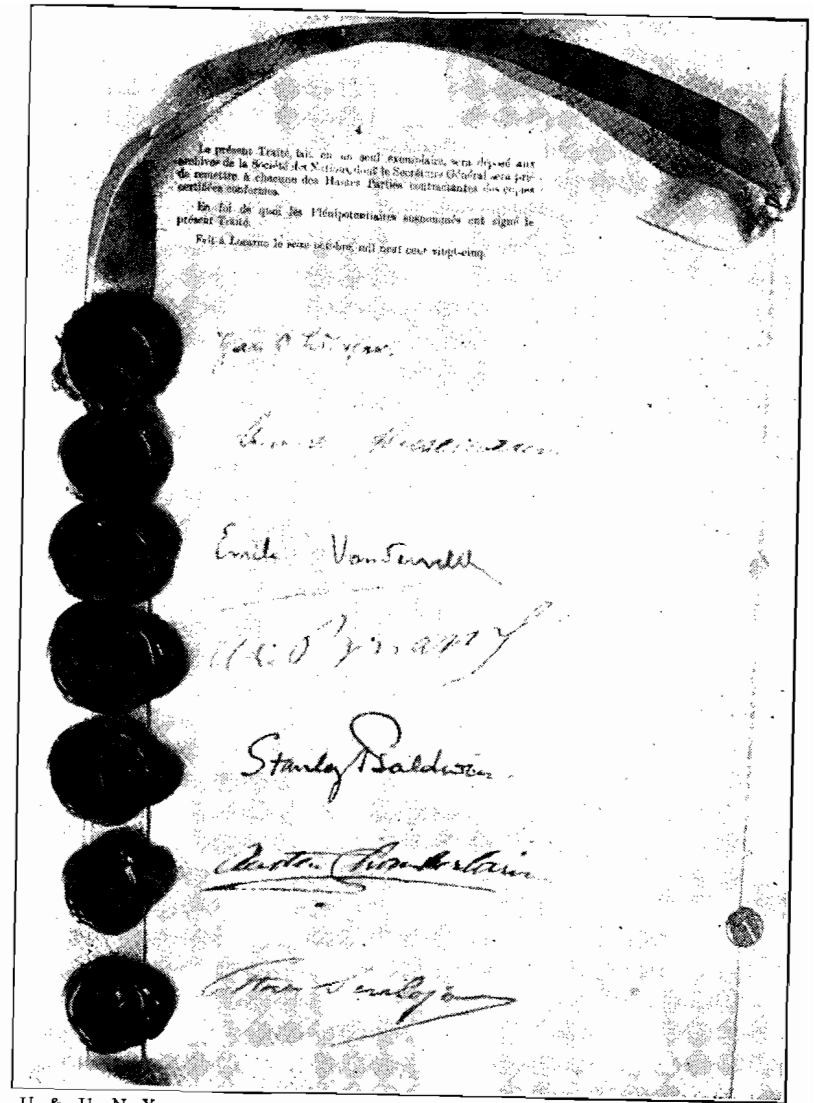 4
Le présent Traité, fait en un seul exemplaire, sera déposé aux
archives de la Société des Nations, dont le Secrétaire Général sera prié
de remettre à chacune des Hautes Parties contractantes des copies
certifiées conformes.
En foi de quoi les Plénipotentiaires susnommés ont signé le
présent Traité.
Fait à Locarno le seize octobre, mil neuf cent vingt-cinq.
Emile Vandervelde
Stanley Baldwin
Austen Chamberlain
U & U N Y